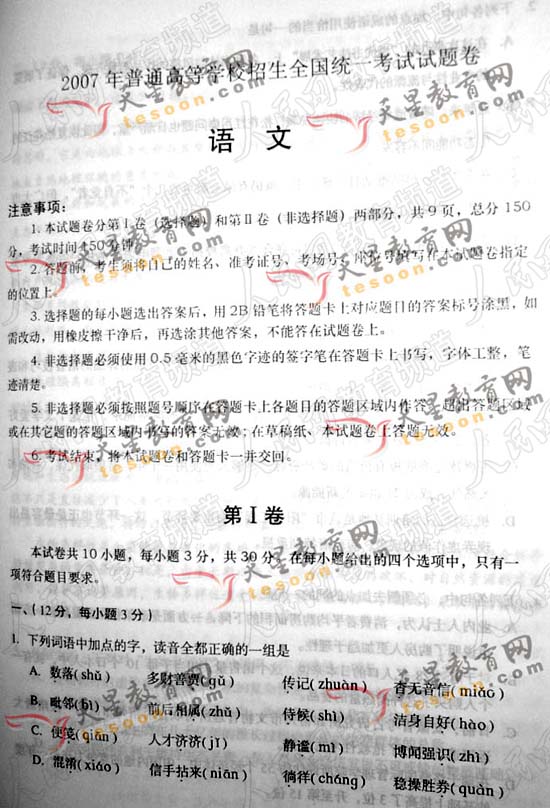 2007年普通高等学校招生全国统一考试试题卷
语 文
注意事项:
1.本试题卷分第Ⅰ卷(选择题)和第Ⅱ卷(非选择题)两部分,共9页,总分150
分,考试时间150分钟。
2.答题前,考生须将自己的姓名、准考证号、考场号、座位号填写在本试题卷指定
的位置上。
3.选择题的每小题选出答案后,用2B铅笔将答题卡上对应题目的答案标号涂黑,如
需改动,用橡皮擦干净后,再选涂其他答案,不能答在试题卷上。
4.非选择题必须使用0.5毫米的黑色字迹的签字笔在答题卡上书写,字体工整,笔
迹清楚。
5.非选择题必须按照题号顺序在答题卡上各题目的答题区域内作答。超出答题区域
或在其它题的答题区域内书写的答案无效;在草稿纸、本试题卷上答题无效。
6.考试结束,将本试题卷和答题卡一并交回。
第Ⅰ卷
本试卷共10小题,每小题3分,共30分。在每小题给出的四个选项中,只有一
项符合题目要求。
一、(12分,每小题3分)
1. 下列词语中加点的字,读音全都正确的一组是
A. 数落(shǔ) 多财善贾(gǔ) 传记(zhuàn) 杳无音信(miǎo)
B. 毗邻(bì) 前后相属(zhǔ) 侍候(shì) 洁身自好(hào)
C. 便笺(qiān) 人才济济(jǐ) 静谧(mì) 博闻强识(zhì)
D. 混淆(xiáo) 信手拈来(niān) 徜徉(cháng) 稳操胜券(quàn)
天星教育网
tesoon.com
人民网教育频道